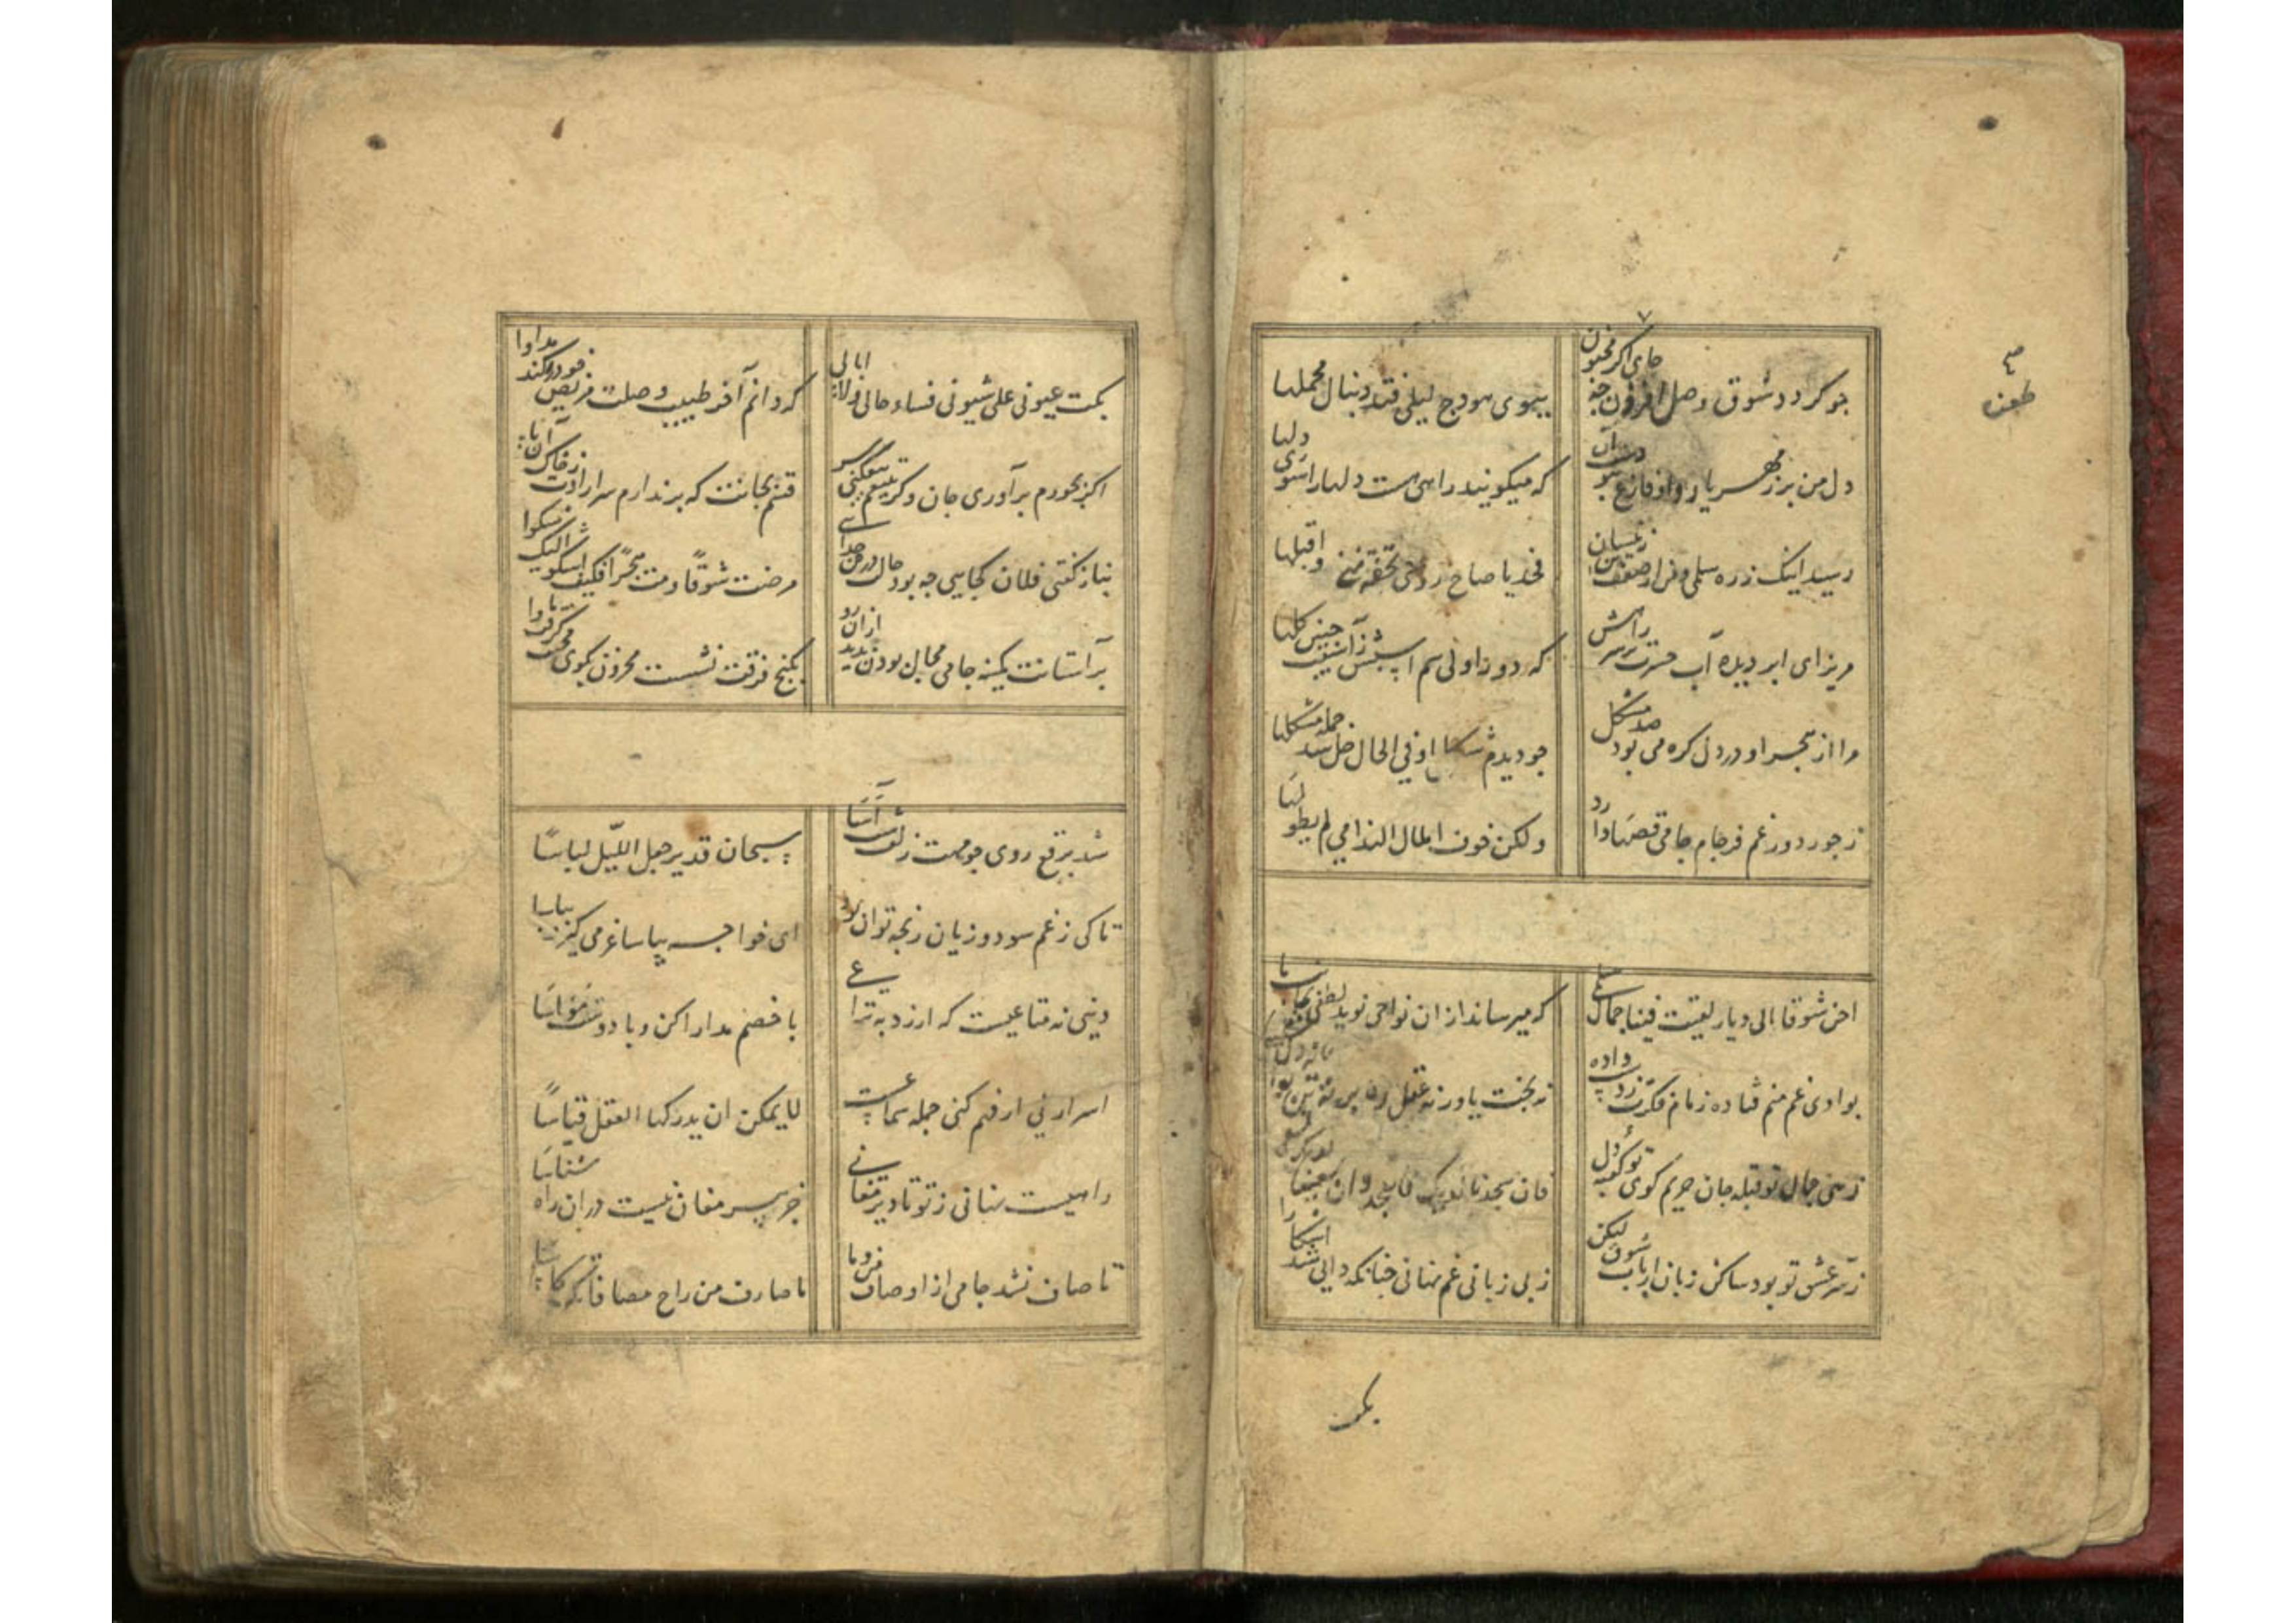 چو گردد شوق وصل افزون چه جای اگر مجنون
ببوی هودج لیلی فتد دنبال محملها
دل من پر ز مهر یار و او فارغ نبودست آن
که میکویند راهی هست دلها را سوی دلها
رسید اینک ز ره سلمی و من از ضعف تن زینسان
فخذ یا صاح روحی تحفة منی و اقبلها
مریز ای ابر دیده آب حسرت بر سر راهش
که دور اولی سم اسپش ز آسیب چنین گلها
مرا از هجر او در دل گره می بود صد مشکل
جو دیدم شکل او فی الحال حل شد جمله مشکلها
ز جور دور غم فرجام جامی قصه‌ها دارد
ولکن خوف املال الندامی لم یطولها
احن شوقا الی دیار لقیت فیها جمال سلمی
که میرساند از ان نواحی نوید لطفی بجانب ما
بوادی غم منم فتاده زمام فکرت ز دست داده
نه بخت یاور نه عقل رهبر نه تن توانا نه دل شکیبا
زهی جمال تو قبله جان حریم کوی تو کعبه دل
فان سجدنا الیک نسجد و ان سعینا الیک نسعی
ز سر عشق تو بود ساکن زبان ارباب شوق لیکن
ز بی زبانی غم نهانی چنانکه دانی شد آشکارا
بکت
بکت عیونی علی شیونی فساء حالی ولا ابالی
که دانم آخر طبیب وصلت مریض خود را کند مداوا
اگر بجورم برآوری جان وگر بتیغم بیفکنی سر
قسم بجانت که برندارم سر ارادت ز خاک آن پا
بناز گفتی فلان کجایی چه بود حال در جدایی
مرضت شوقًا ومت هجرًا فکیف اشکو الیک شکوا
بر آستانت کمینه جامی مجال بودن ندید ازان رو
بکنج فرقت نشست محزون بکوی محنت گرفت ماوا
شد برقع روی چو مهت زلف شب آسا
سبحان قدیر جعل اللیل لباسًا
تا کی ز غم سود و زیان رنجه توان بود
ای خواجه بیا ساغر می گیر و بیاسا
دنیی نه متاعیست که ارزد به نزاعی
با خصم مدارا کن و با دوست مواسا
اسرار نی ار فهم کنی جمله سماعیست
لا یمکن ان یدرکها العقل قیاسًا
راهیست نهانی ز تو تا دیر مغانی
جز پیر مغان نیست دران راه شناسا
تا صاف نشد جامی از اوصاف من و ما
ما صادف من راح مصافاتک کاسا